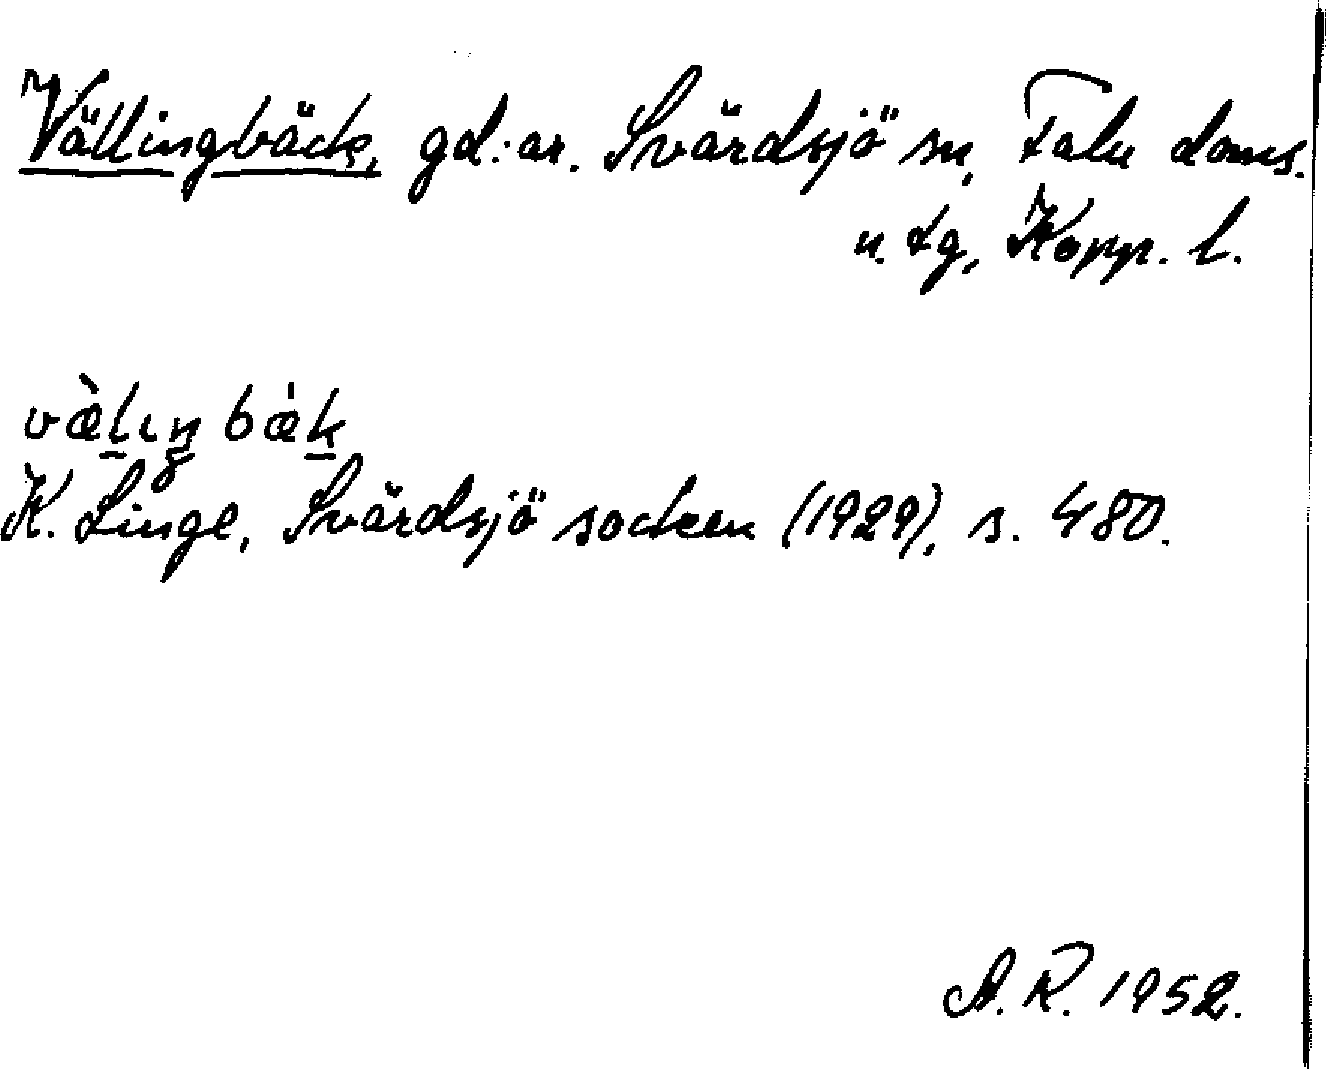 Vällingbäck, gd:ar. Svärdsjö sn, Falu doms.
n. tg, Kopp. l.
væ̀lıŋ bæ̀k
K. Linge, Svärdsjö socken (1929), s. 480.
A. R. 1952.